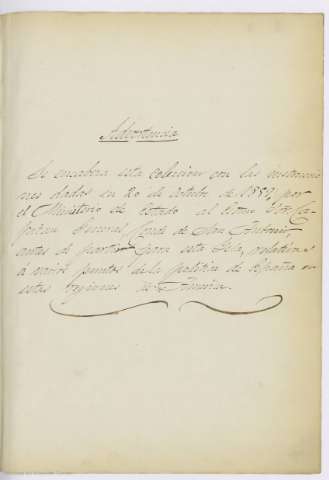 Advertencia
Se encabeza esta coleccion con las instruccio
nes dadas en 20 de octubre de 1859, por
el Ministerio de Estado al Excmo Sor Ca-
pitan General, Conde de San Antonio,
antes de partir para esta Isla, relativas
á varios puntos de la politica de España en
estas regiones